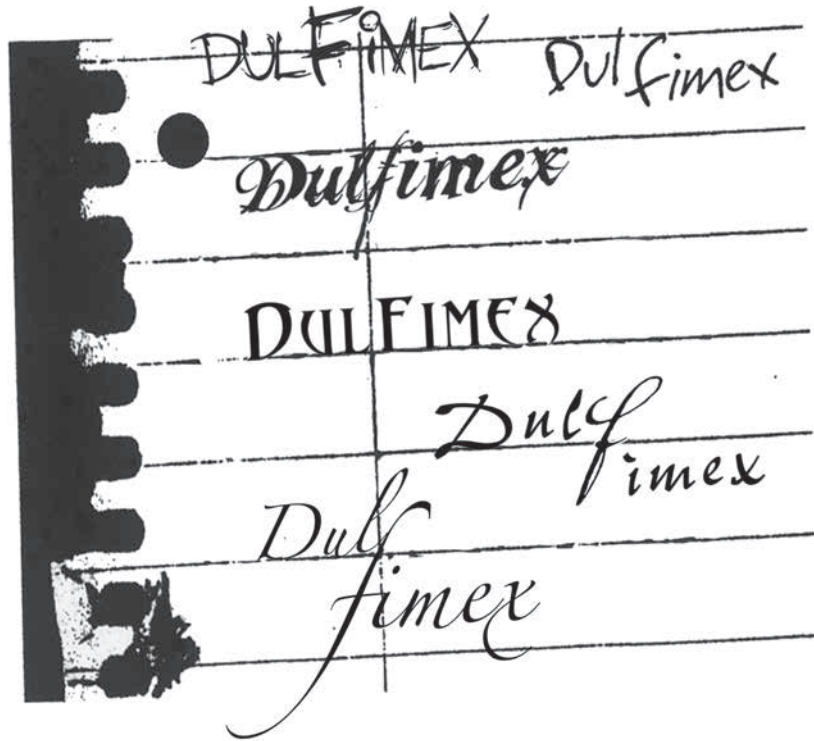 DULFiMEX
Dulfimex
Dulfimex
DULFIMEX
Dulf
imex
Dul
fimex